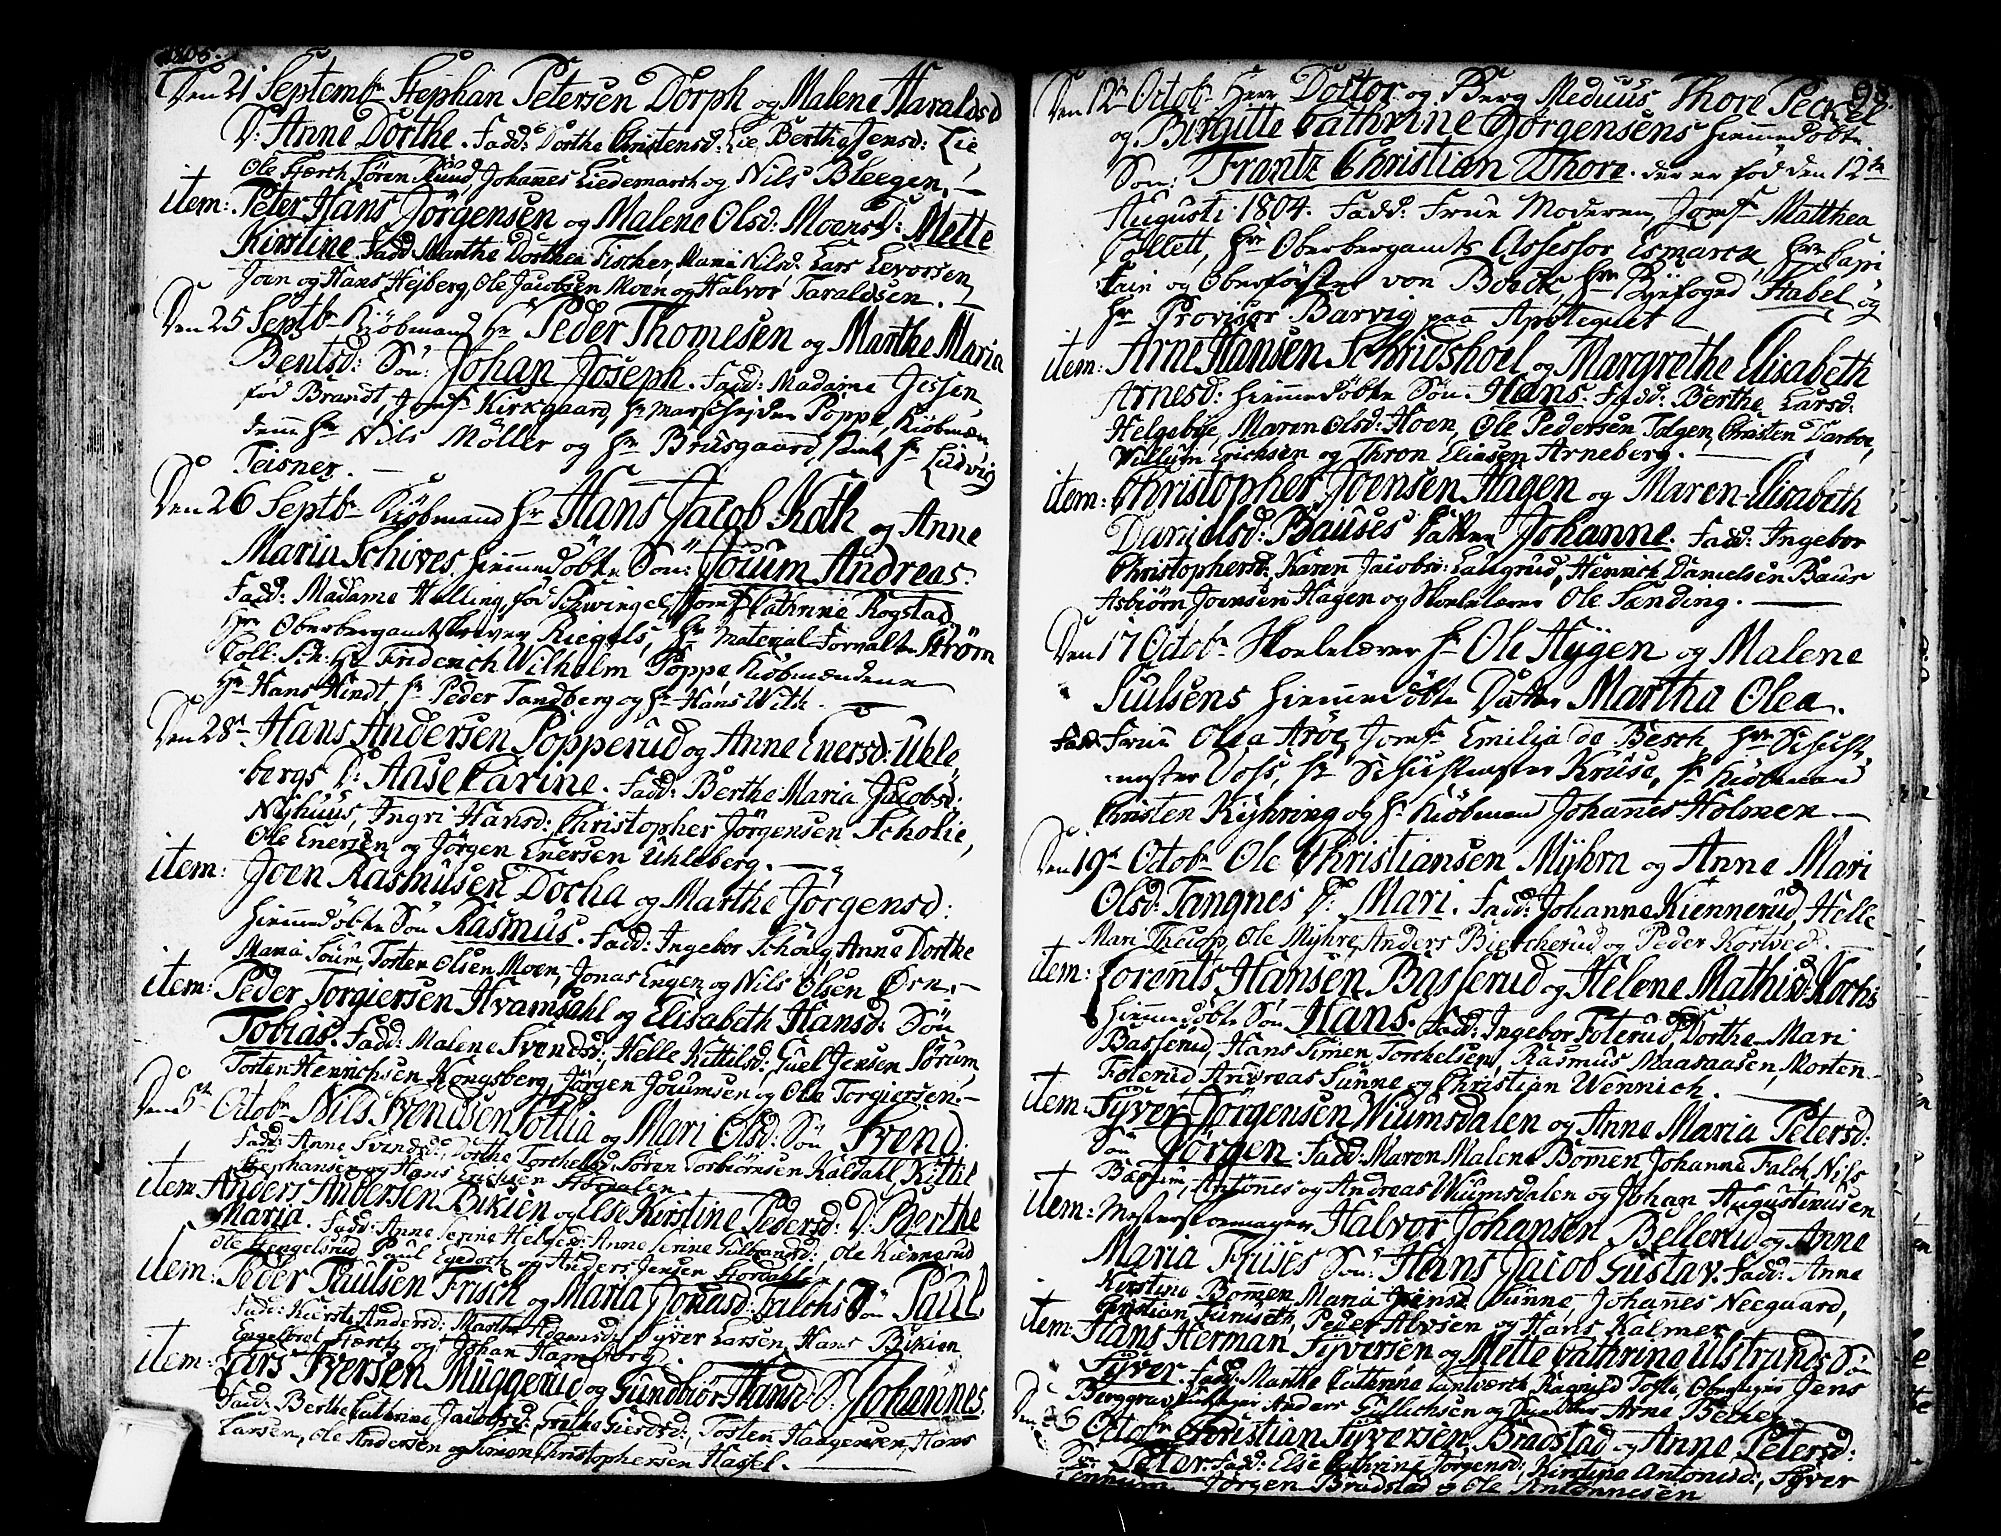 1805.
Den 21 Septembr Stephan Petersen Dorph og Malene Haraldsd
D: Anne Dorthe. Fadd: Dorthe Christensd: Lie Berthe Jensd: Lie
Ole Hærch Søren Lund, Johanes Liedemarch og Nils Bleegen.
item: Peter Hans Jörgensen og Malene Olsd: Moens D: Mette
Kirstine. Fadd Marthe Dorthea Fischer, Maria Nilsd: Lars Levorsen
Joen og Hans Hejberg, Ole Jacobsen Moen og Halvor Taraldsen.
Den 25 Septbr Kiöbmand Hr Peder Thomesen og Marthe Maria
Bentsd: Sön: Johan Joseph. Fadd: Madame Jessen
fød Brandt, Jomfr Kirkgaard, Hr Marschejder Poppe, Kiöbmæn
dene Hr Nils Möller og Hr Bruusgaard, Hr Ludvig
Teisner.
Den 26 Septbr Kiöbmand Hr Hans Jacob Koth og Anne
Maria Schives hiemmedöbte Sön: Jouum Andreas.
Fadd: Madame Helling, fød Schwingel, Jomfr Cathrine Rogstad,
Hr Oberbergamtskriver Riegels, Hr Material Forvalter Ström
Coll: Hr Friderich Wilhelm Poppe Kiöbmændene
Hr Hans Hindt Hr Peder Tandberg og Hr Hans With.
Den 28de Hans Andersen Popperud og Anne Enersd: Uhle
bergs D: Aase Carine. Fadd: Berthe Maria Jacobsd:
Nÿhuus, Ingri Hansd: Christopher Jörgensen Scholie,
Ole Enersen og Jörgen Enersen Uhleberg.
item: Joen Rasmusen Docha og Marthe Jörgensd:
hiemmedöbte Sön Rasmus. Fadd: Ingebor Anne Dorthe
Maria Torsten Olsen Moen, Jonas Engen og Nils Olsen Örn.
item: Peder Torgiersen Hvamsahl og Elisabeth Hansd: Sön
Tobias. Fadd: Malene Svendsd:, Helle Kittilsd:, Juel Jensen Sørum,
Torsten Henrichsen Kongsberg, Jørgen Jouumsen og Ole Torgiersen.
Den 5te Octobr Nils Svendsen Follia og Mari Olsd: Sön Svend.
Fadd: Anne Svendsd, Dorthe Torchelsd, Sören Torbiörnsen Kaldall, Kittil
Stephansen og Hans Erichsen Stordalen.
item Anders Andersen Bikien og Else Kirstine Pedersd: D: Berthe
Maria. Fadd: Anne Serine Helgesd: Anne Serine Gulbrandsd:, Ole Kiennerud
Ole Hengelsrud Paul Egedorf og Anders Jensen Stordahlen
item: Peder Paulsen Frisch og Maria Jonasd: Falchs Sön Paul.
Fadd: Kierste Andersd: Marthe Adamsd:, Syver Larsen, Hans Bikien
Engelbret Hærch og Johan Hamborg.
item: Lars Iversen Müggerud og Gundbiör Hansd S: Johannes.
Fadd: Berthe Cathrine Jacobsd:, Grethe Giersd:, Torsten Haagensen, Hans
Larsen, Ole Andersen og Simon Christophersen Hassel.
98.
Den 12te Octobr Herr Doctor og Berg Medicus Thore Peckel
og Birgitte Cathrine Jörgensens hiemmedöbte
Son: Frantz Christian Thore. der er fød den 12te
Augusti 1804. Fadd: Frue Moderen, Jomfr Matthea
Collett, Hr Oberbergamts Assessor Esmarck, Hr Capi
tain og Oberförster von Hr Byefoged Stabel, og
Hr Provisor Barvig paa Apotequet
item: Arne Hansen Schridshoel og Margrethe Elisabeth
Arnesd: hiemmedöbte Sön. Hans. Fadd: Berthe Larsd:
Helgebye, Maren Olsd: Hoen, Ole Pedersen Tolgen, Christen Darboe,
Willum Erichsen og Thron Eliasen Arneberg.
item: Christopher Joensen Hagen og Maren Elisabeth
Danielsd: Bauses Datter Johanne. Fadd: Ingebor
Christophersd:, Karen Jacobsd: Laugrud, Henrich Danielsen Baus
Asbiørn Joensen Hagen og Skolelærer Ole Sending.
Den 17 Octobr Skolelærer Hr Ole Hÿgen og Malene
Juulsens hiemmedöbte Datter Martha Olea.
Fadd: Frue Olea Aröe, Jomfr Emilia de Besch, Hr Schicht
mester Voss, Hr Schichtmester Kruse, Hr Kiöbmand
Christen Kÿhring og Hr Kiöbmand Johannes Holmen
Den 19de Octobr Ole Christiansen Mÿhra og Anne Mari
Olsd: Tangnes D: Mari. Fadd: Johanne Kiennerud, Helle
Mari Ole Myhre, Anders Biercherud og Peder Kortved.
item: Lorents Hansen Basserud og Helene Mathisd: Kochs
hiemmedöbte Sön Hans. Fadd: Ingebor Foterud, Dorthe Mari
Basserud, Hans Simen Torchelsen, Rasmus Maasaasen, Morten
Foterud Andreas Sunne og Christian Wennich.
item. Syver Jörgensen Wiumsdalen og Anne Maria Petersd:
Sön Jörgen. Fadd: Maren Malene Bomen, Johanne Falch, Nils
Baskim, Antönnes og Andreas Wiumsdalen og Johan Augustinusen
item: Halvor Johansen Bellerud og Anne
Maria Friises Sön: Hans Jacob Gustav. Fadd: Anne
Kirstine Bomen, Maria Jensd Sunne, Johannes Neegaard,
Christian Funiseth, Peder Alvsen og Hans Kalmer
item: Hans Herman Syversen og Mette Cathrine Ulstrands Sön
Syver. Fadd: Marthe Cathrine Lantværch Ragnild Tofte, Oberstiger Jens
Berggrav, Anders Gullichsen og Arne Becker
Den 26 Octobr Christian Syversen Bradstad og Anne Petersd:
Sön Peter. Fadd: Else Cathrine Jörgensd:, Kirstine Antonisd:, Syver
Jörgen Bradstad og Ole Antönnesen